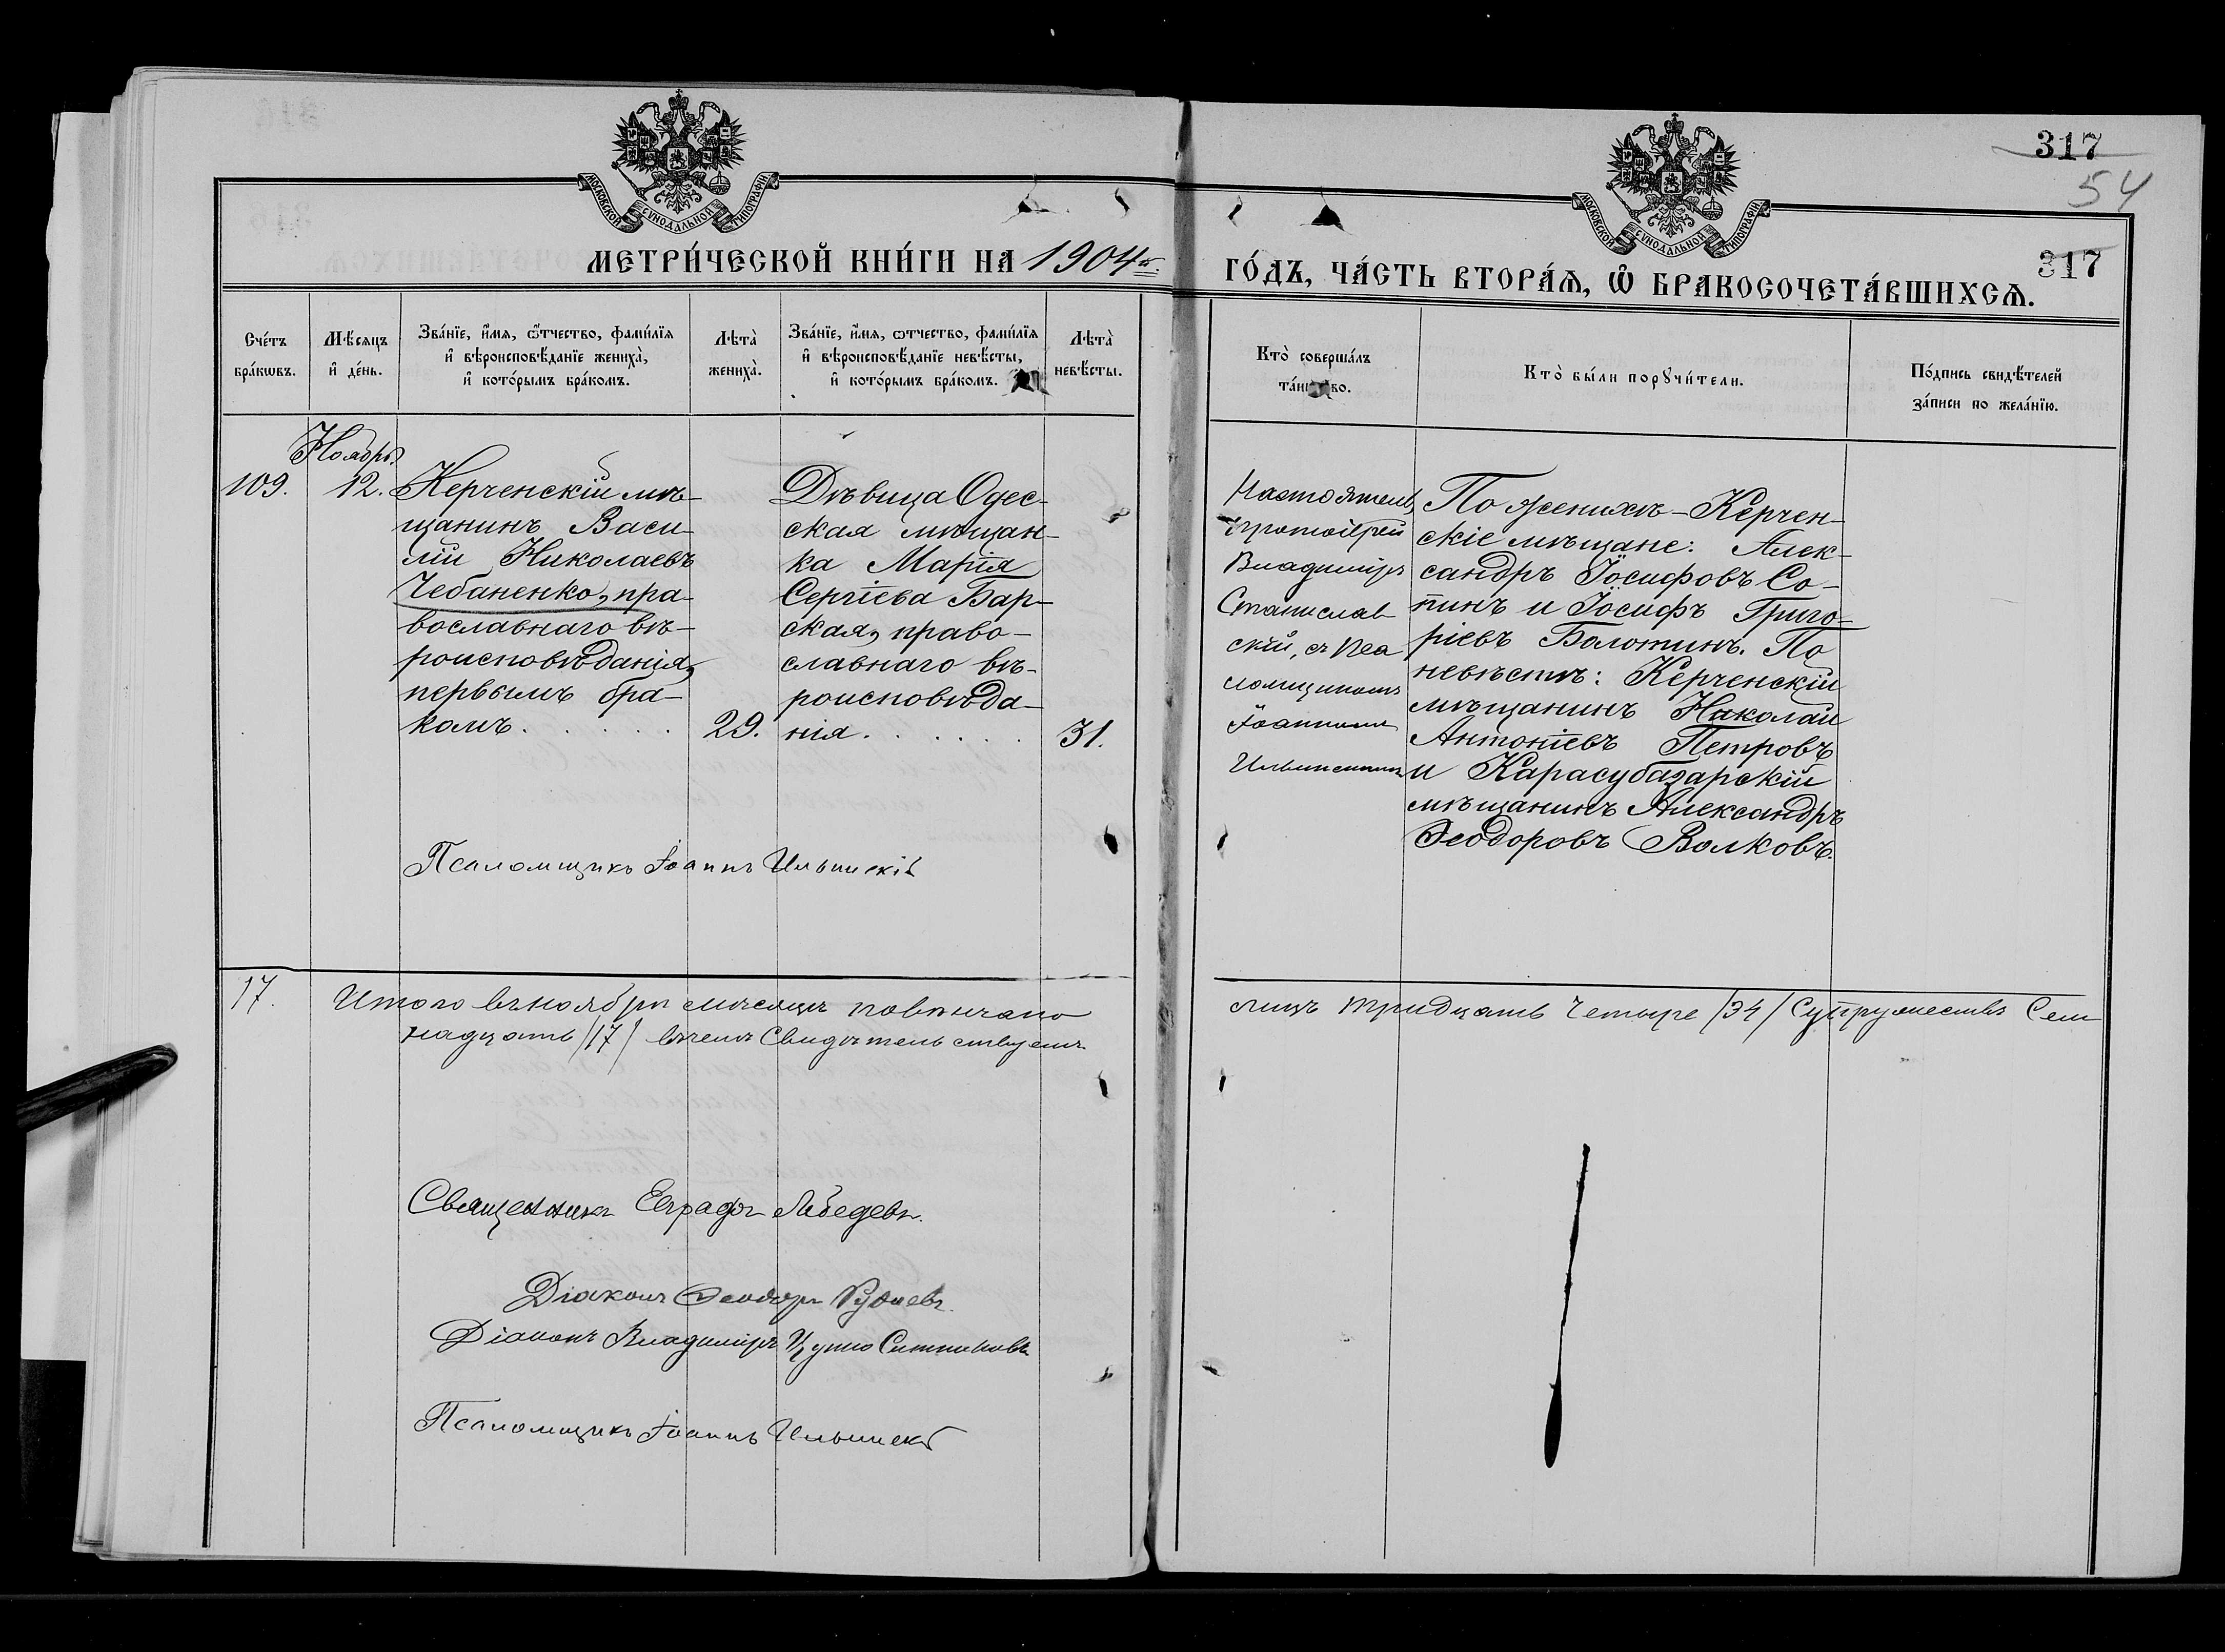 317
54
МОСКОВСКОЙ СѴНОДАЛЬНОЙ ТИПОГРАФІИ
МОСКОВСКОЙ СѴНОДАЛЬНОЙ ТИПОГРАФІИ
МЕТРИ́ЧЕСКОЙ КНИ́ГИ НА 1904й.
ГО́ДЪ, ЧА́СТЬ ВТОРА́Ѧ, Ѽ БРАКОСОЧЕТА́ВШИХСѦ.
317
Сче́тъ
бра́кѡвъ.
Мѣ́сяцъ
и҆ де́нь.
Зва́нїе, и҆́мя, ѻ҆́тчество, фами́лїя
и҆ вѣроисповѣ́данїе жениха̀,
и҆ кото́рымъ бра́комъ.
Лѣта̀
жениха̀.
Зва́нїе, и҆́мя, ѻтчество, фами́лїя
и҆ вѣроисповѣ́данїе невѣ́сты,
и҆ кото́рымъ бра́комъ.
Лѣта̀
невѣ́сты.
Кто̀ соверша́лъ
та́инство.
Кто̀ бы́ли порꙋчи́тели.
По́дпись свидѣ́телей
за́писи по жела́нїю.
Ноябрь
109.
12.
Керченскій мѣ-
щанинъ Васи-
лій Николаевъ
Чебаненко, пра-
вославнаго вѣ-
роисповѣданія,
первымъ бра-
комъ. . . . . .
29.
Дѣвица Одес-
ская мѣщан-
ка Марія
Сергіева Бар-
ская, право-
славнаго вѣ-
роисповѣда-
нія. . . . . .
31.
Настоятель
Протоіерей
Владиміръ
Станислав
скій, съ Пса
ломщикомъ
Іоанномъ
Ильинскимъ
По женихѣ - Керчен-
скіе мѣщане: Алек-
сандръ Іосифовъ Со-
пинъ и Іосифъ Григо-
ріевъ Болотинъ. По
невѣстѣ: Керченскій
мѣщанинъ Николай
Антоніевъ Петровъ
и Карасубазарскій
мѣщанинъ Александръ
Ѳеодоровъ Волковъ.
Псаломщикъ Іоаннъ Ильинскій
17.
Итого въ ноябрѣ мѣсяцѣ повѣнчано
лицъ тридцать четыре /34/ Супружествъ Сем
надцать /17/ въ чемъ Свидѣтельствуемъ
Священникъ Евграфъ Лебедевъ.
Діаконъ Ѳеодоръ Рудневъ.
Діаконъ Владиміръ Ситниковъ
Псаломщикъ Іоаннъ Ильинскій